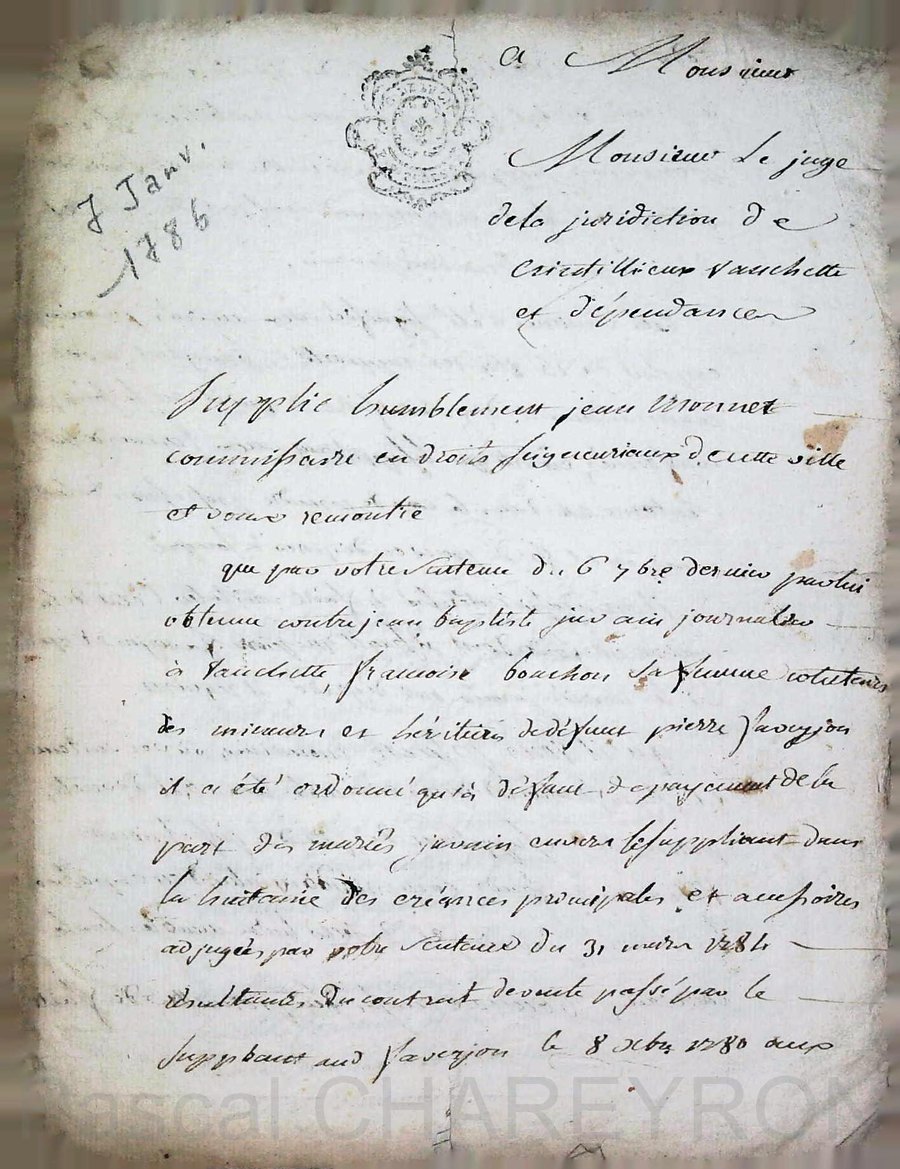 A Monsieur
Monsieur Le juge
dela juridiction de
Crintillieux Vauchette
et dépendances
7 Janv.
1785
Supplie humblement jean Monnet
commissaire en droits seigneuriaux de cette ville
et vous remontre
que par votre sentence du 6 7bre dernier par lui
obtenue contre jean baptiste juvain journalier
à Vauchette, francoise bouchon sa femme cotuteurs
des mineurs et héritiers de défunt pierre faverjon
il a été ordonné qu'à défaut de payement de la
part des mariés juvain envers le suppliant dans
la huitaine des créances principales et accessoires
adjugées par votre sentence du 31 mars 1784
résultantes du contrat de vente passé par le
suppliant aud faverjon le 8 xbre 1780 aux
Pascal CHAREYRON